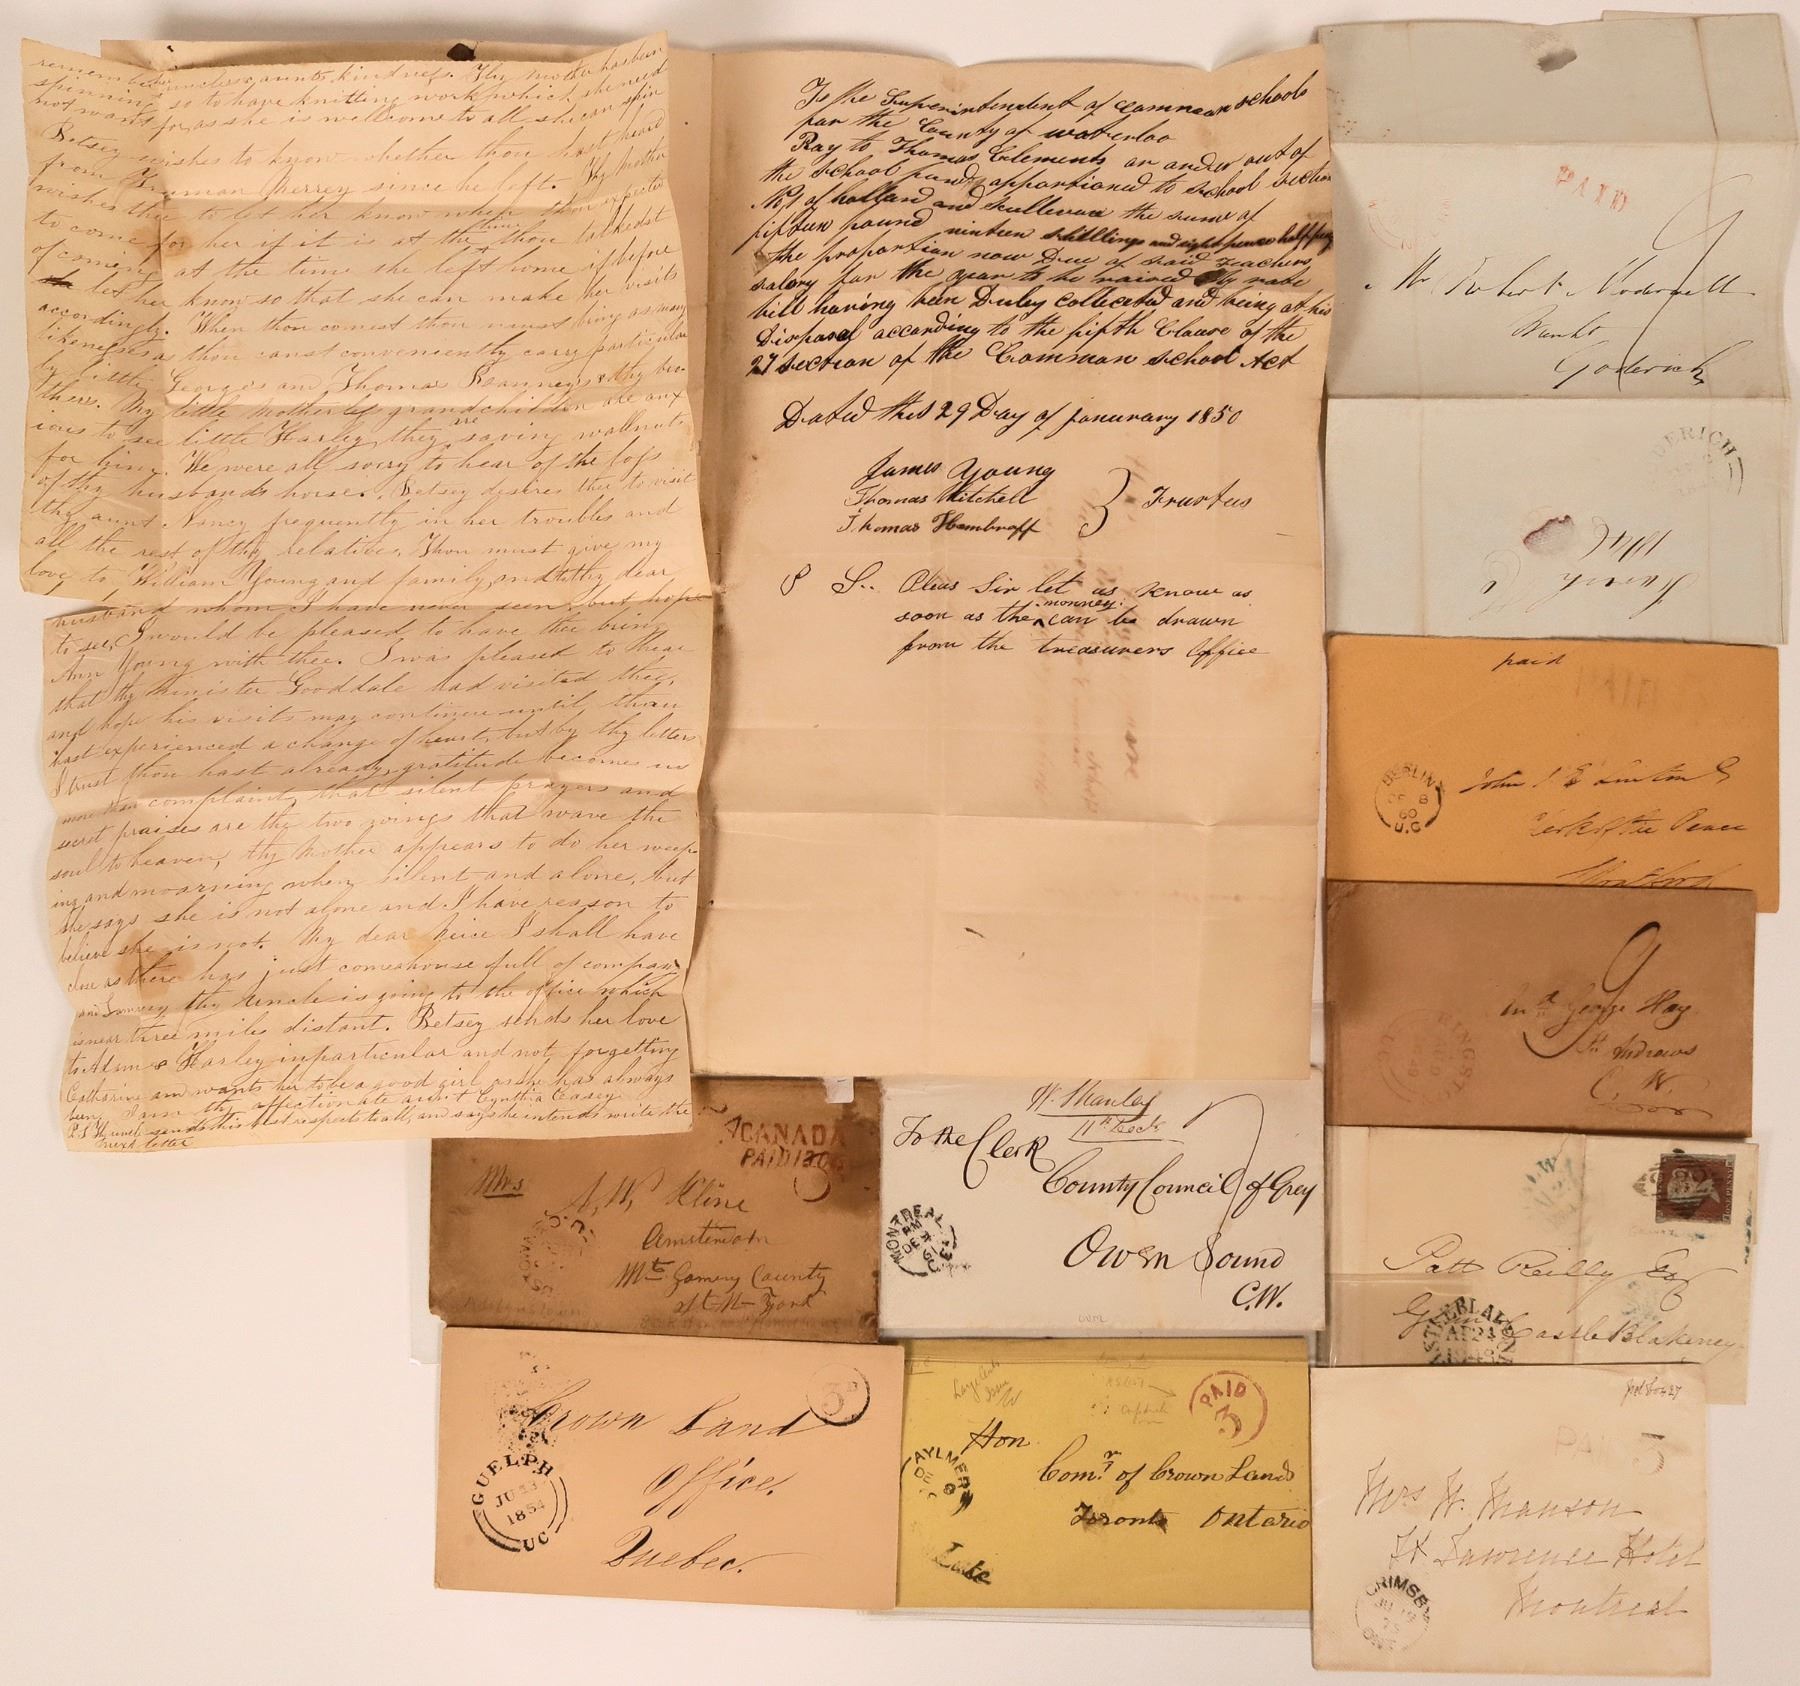 remember uncles & aunts kindness. Thy mother has been
spinning so to have knitting work which she need
not want for, as she is wellcome to all she can spin
Betsey wishes to know whether thou hast heard
from Truman Merrey since he left. Thy Mother
wishes thee to let her know when thou expected
to come for her if it is at the time thou talkedst
of coming at the time she left home if before
let her know so that she can make her visits
accordingly. When thou comest thou must bring as many
likenesses as thou canst conveniently carry particular
ly little Georges and Thomas Ranneys & thy bro-
thers. My little Motherless grandchildren are anx
ious to see little Harley, they are saving wallnuts
for him. We were all sorry to hear of the loss
of thy husbands horse. Betsey desires thee to visit
thy aunt Nancy frequently in her troubles and
all the rest of thy relatives. Thou must give my
love to William Young and family, and to thy dear
husband whom I have never seen but hope
to see, I would be pleased to have thee bring
Ann Young with thee. I was pleased to hear
that thy Minister Gooddale had visited thee,
and hope his visits may continue until thou
hast experienced a change of heart, but by thy letters
I trust thou hast already, gratitude becomes us
more than complaint, that silent prayers and
secret praises are the two wings that wave the
soul to heaven, thy Mother appears to do her weep-
ing and moarning when silent and alone, but
she says she is not alone and I have reason to
believe she is not. My dear Neice I shall have
close as there has just come a house full of company
and thy Uncle is going to the office which
is near three miles distant. Betsey sends her love
to Adam & Harley in particular and not forgetting
Catharine and wants her to be a good girl as she has always
been. I am thy affectionate aunt Cynthia Casey
P.S Thy uncle sends his best respects to all, and says he intends write the
next letter
To the Superintendent of Common schools
par the County of waterloo
Pay to Thomas Clements an ander out of
the school fund apportioned to school section
No 1 of holland and Sullevan the sume of
fiften pound ninteen shillings and eight pence half peny
the proportian now Due of said teachers
salary par the year to be raised By rate
bill having been Duley collected and being at his
Disposal according to the fifth Clause of the
27 section of the Comman school Act
Dated this 29 Day of januarary 1850
James Young
Thomas Mitchell
Thomas Hembroff
Trustus
P S.. Pleas Sir let us know as
soon as the monney can be drawn
from the treasurers Office
PAID
Mr Robert Moderwell
Goderich
DERICH
paid
BERLIN
OC 8
60
U.C
John
Clerk of the Peace
9
George Hay
St Andrews
C. W.
Patt Reilly Esq
Castle Blakeney
AP 24
1848
CANADA
PAID 10 Cs
Mrs
N. W. Kline
Amsterdam
Mt Gomery County
St N- York
W. Stanley
11th Dec
To the Clerk
County Council of Grey
Owen Sound
C.W.
MONTREAL
AM
DE
61
3D
Crown Land
Office.
Quebec.
GUELPH
JU 13
1854
UC
PAID
3
Hon
Comr. of Crown Lands
Toronto Ontario
AYLMER
DE 8
Late
PAID 5
Mrs W. Manson
St Lawrence Hotel
Montreal
GRIMSBY